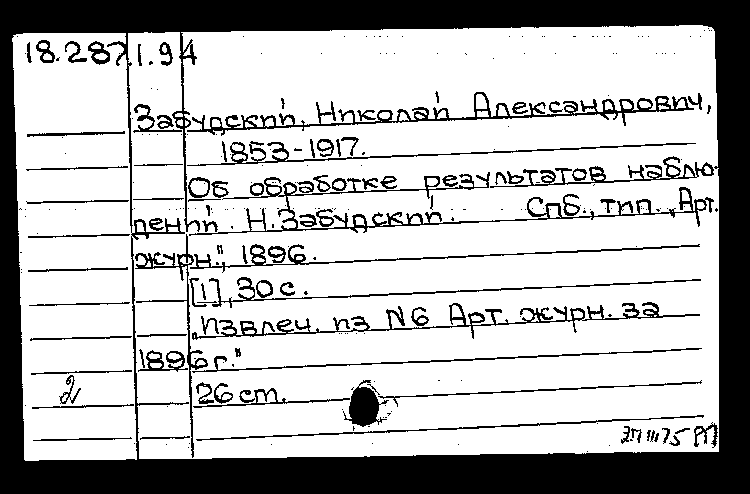 18.287.1.94
Забудский, Николай Александрович,
1853-1917.
Об обработке результатов наблю-
дений. Н.Забудский. Спб., тип. „Арт.
журн.", 1896.
[1], 30 с.
„Извлеч. из N6 Арт. журн. за
1896 г."
26 ст.
2